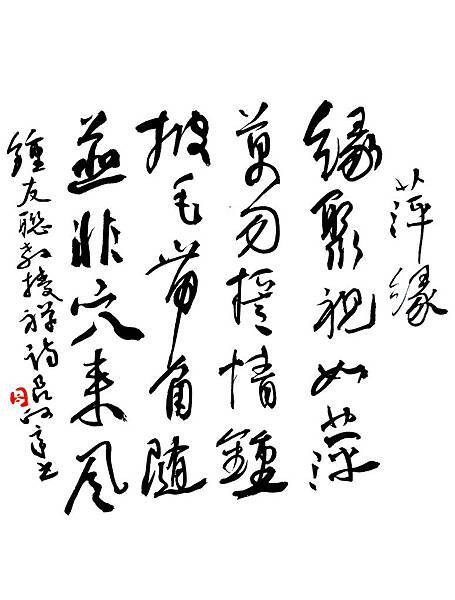 萍緣
緣聚視如萍
萬勿情鍾
披毛帶角隨
並非穴來風
鍾友聯教授禪詩呂書